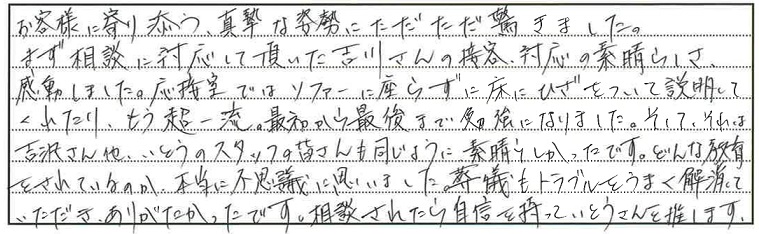 お客様に寄り添う、真摯な姿勢にただただ驚きました。
まず相談に対応して頂いた吉川さんの接客、対応の素晴らしさ、
感動しました。応接室ではソファーに座らずに床にひざをついて説明して
くれたり、もう超一流。最初から最後まで勉強になりました。そして、それは
吉沢さん他、いとうのスタッフの皆さんも同じように素晴らしかったです。どんな教育
をされているのか、本当に不思議に思いました。葬儀もトラブルをうまく解消して
いただき、ありがたかったです。相談されたら自信を持っていとうさんを推します。